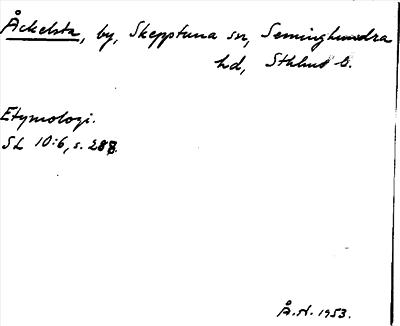 Åckelsta, by, Skepptuna sn, Seminghundra
hd, Sthlms l.
Etymologi.
SL 10:6, s. 288.
Å.N. 1953.